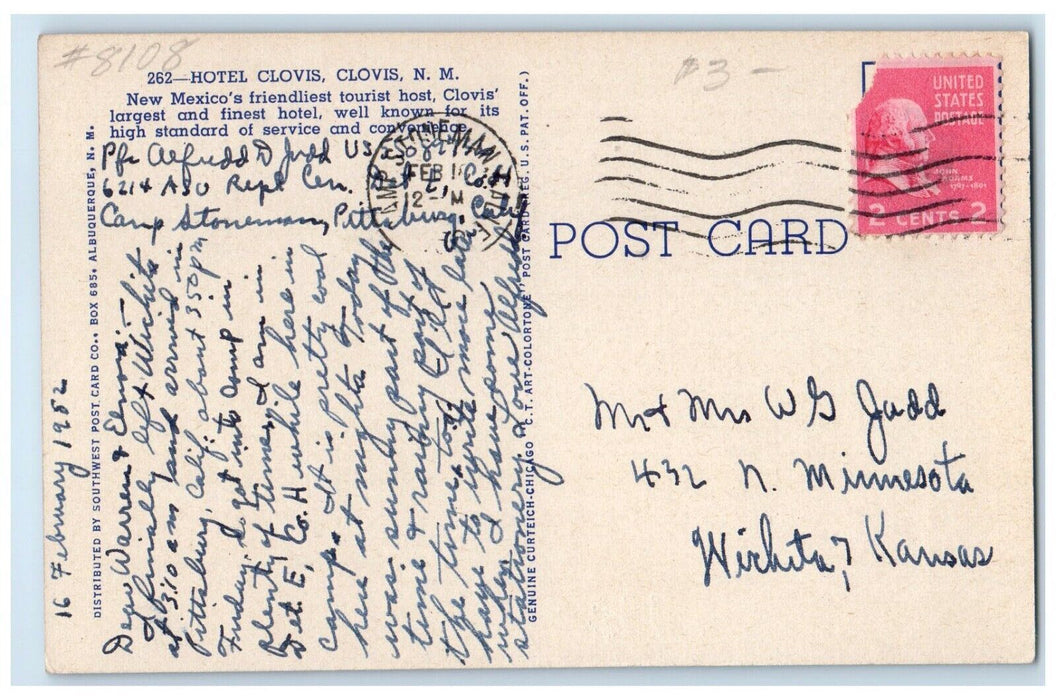 #8108
262—HOTEL CLOVIS, CLOVIS, N. M.
New Mexico's friendliest tourist host, Clovis'
largest and finest hotel, well known for its
high standard of service and convenience.
Pfc Alfredd D Judd US
6214 ASU Repl Cen. Det E, Co. H
Camp Stoneman, Pittsburg, Calif
16 February 1952
Warren & Edna:
I finally left Wichita
at 3:10 a m and arrived in
Pittsburg, Calif. about 350 pm
I got into camp in
plenty of time. I am in
Det. E, Co. H while here in
camp. It is pretty cool
here at nights. Today
was sunny part of the
time & rainy part of
the time too. I'll
have to write more later
when I have some
stationery. Love Alfredd
DISTRIBUTED BY SOUTHWEST POST CARD CO., BOX 685, ALBUQUERQUE, N. M.
GENUINE CURTEICH-CHICAGO "C.T. ART-COLORTONE" POST CARD (REG. U.S. PAT. OFF.)
CAMP STONEMAN
FEB 1
2- M
CALIF
3-
UNITED
STATES
POSTAGE
JOHN
ADAMS
1797-1801
2 CENTS 2
POST CARD
Mr & Mrs W G Judd
432 N. Minnesota
Wichita 7, Kansas